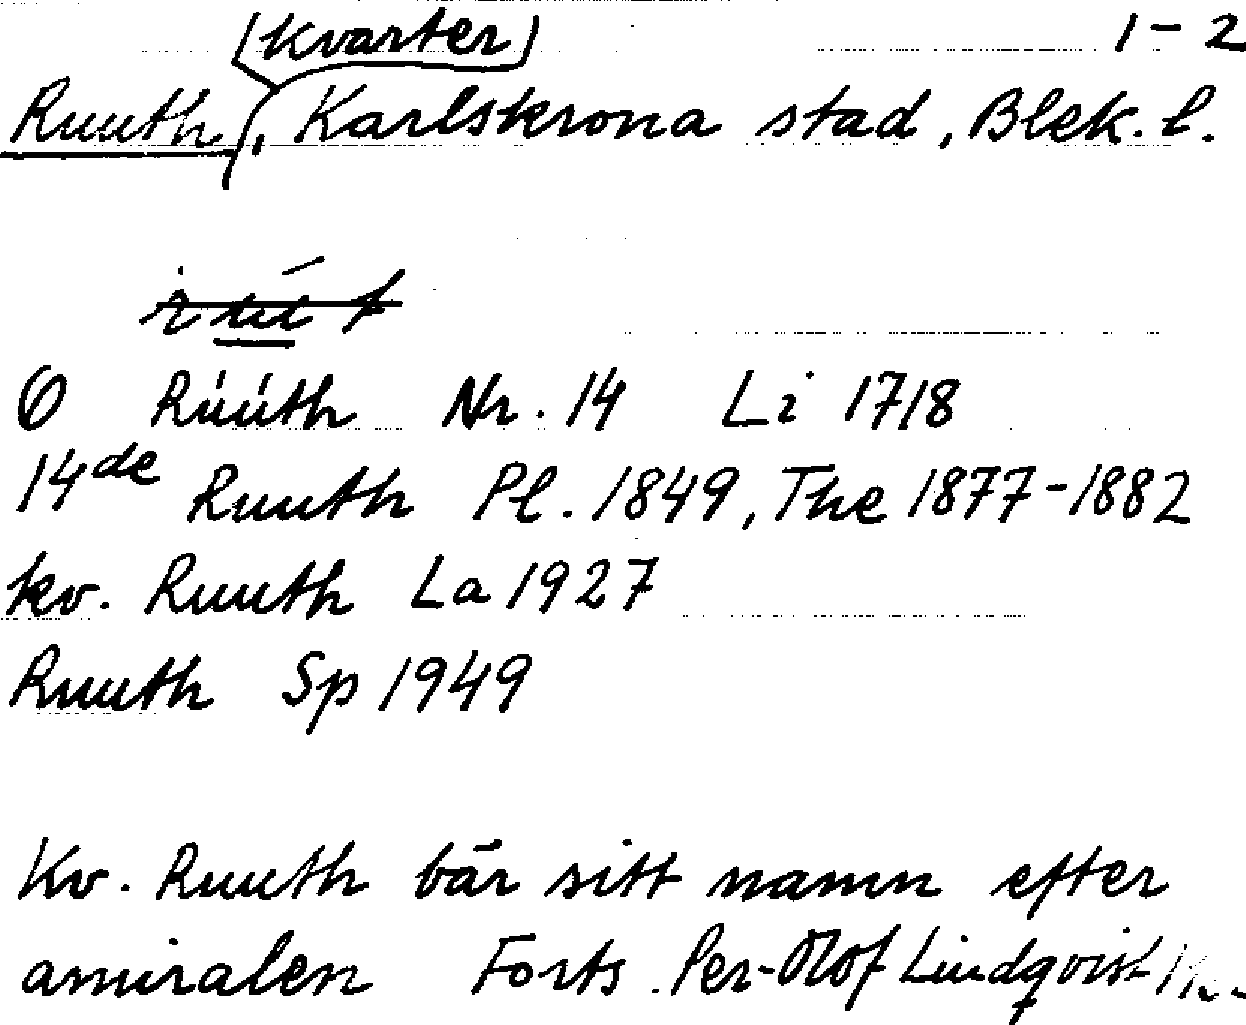 (kvarter) 1-2
Ruuth, Karlskrona stad, Blek. l.
Rúúth Nr. 14 Li 1718
14de Ruuth Pl. 1849, The 1877-1882
kv. Ruuth La 1927
Ruuth Sp 1949
Kv. Ruuth bär sitt namn efter
amiralen Forts. Per-Olof Lindqvist